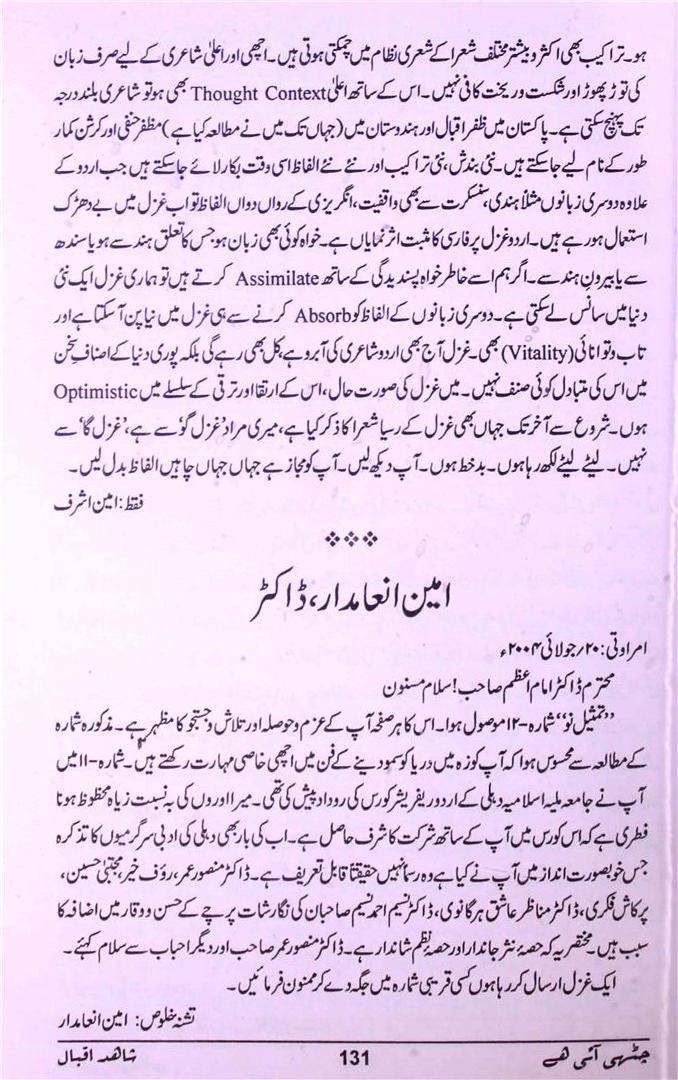 ہو۔ تراکیب بھی اکثر و بیشتر مختلف شعرا کے شعری نظام میں چمکتی ہوتی ہیں۔ اچھی اور اعلیٰ شاعری کے لیے صرف زبان
کی توڑ پھوڑ اور شکست و ریخت کافی نہیں۔ اس کے ساتھ اعلیٰ Thought Context بھی ہو تو شاعری بلند درجہ
تک پہنچ سکتی ہے۔ پاکستان میں ظفر اقبال اور ہندوستان میں (جہاں تک میں نے مطالعہ کیا ہے) مظفر حنفی اور کرشن کمار
طور کے نام لیے جاسکتے ہیں۔ نئی بندش، نئی تراکیب اور نئے نئے الفاظ اسی وقت بکار لائے جاسکتے ہیں جب اردو کے
علاوہ دوسری زبانوں مثلاً ہندی، سنسکرت سے بھی واقفیت، انگریزی کے رواں دواں الفاظ تو اب غزل میں بے دھڑک
استعمال ہو رہے ہیں۔ اردو غزل پر فارسی کا مثبت اثر نمایاں ہے۔ خواہ کوئی بھی زبان ہو جس کا تعلق ہند سے ہو یا سندھ
سے یا بیرونِ ہند سے۔ اگر ہم اسے خاطر خواہ پسندیدگی کے ساتھ Assimilate کرتے ہیں تو ہماری غزل ایک نئی
دنیا میں سانس لے سکتی ہے۔ دوسری زبانوں کے الفاظ کو Absorb کرنے سے ہی غزل میں نیا پن آسکتا ہے اور
تاب و توانائی (Vitality) بھی۔ غزل آج بھی اردو شاعری کی آبرو ہے، کل بھی رہے گی بلکہ پوری دنیا کے اصنافِ سخن
میں اس کی متبادل کوئی صنف نہیں۔ میں غزل کی صورت حال، اس کے ارتقا اور ترقی کے سلسلے میں Optimistic
ہوں۔ شروع سے آخر تک جہاں بھی غزل کے رسیا شعرا کا ذکر کیا ہے، میری مراد ’غزل گو‘ سے ہے، ’غزل گا‘ سے
نہیں۔ لیٹے لیٹے لکھ رہا ہوں۔ بدخط ہوں۔ آپ دیکھ لیں۔ آپ کو مجاز ہے جہاں جہاں چاہیں الفاظ بدل لیں۔
فقط: امین اشرف
❖❖❖
امین انعامدار، ڈاکٹر
امراوتی: ۲۰؍جولائی ۲۰۰۴ء
محترم ڈاکٹر امام اعظم صاحب! سلام مسنون
’’تمثیل نو‘‘ شمارہ-۱۲ موصول ہوا۔ اس کا ہر صفحہ آپ کے عزم و حوصلہ اور تلاش و جستجو کا مظہر ہے۔ مذکورہ شمارہ
کے مطالعہ سے محسوس ہوا کہ آپ کوزہ میں دریا کو سمودینے کے فن میں اچھی خاصی مہارت رکھتے ہیں۔ شمارہ-۱۱ میں
آپ نے جامعہ ملیہ اسلامیہ دہلی کے اردو ریفریشر کورس کی روداد پیش کی تھی۔ میرا اوروں کی بہ نسبت زیاہ محظوظ ہونا
فطری ہے کہ اس کورس میں آپ کے ساتھ شرکت کا شرف حاصل ہے۔ اب کی بار بھی دہلی کی ادبی سرگرمیوں کا تذکرہ
جس خوبصورت انداز میں آپ نے کیا ہے وہ رسماً نہیں حقیقتاً قابل تعریف ہے۔ ڈاکٹر منصور عمر، رؤف خیر، مجتبیٰ حسین،
پرکاش فکری، ڈاکٹر مناظر عاشق ہرگانوی، ڈاکٹر نسیم احمد نسیم صاحبان کی نگارشات پرچے کے حسن و وقار میں اضافہ کا
سبب ہیں۔ مختصر یہ کہ حصۂ نثر جاندار اور حصۂ نظم شاندار ہے۔ ڈاکٹر منصور عمر صاحب اور دیگر احباب سے سلام کہئے۔
ایک غزل ارسال کر رہا ہوں کسی قریبی شمارہ میں جگہ دے کر ممنون فرمائیں۔
تشنہ خلوص: امین انعامدار
چٹھی آئی ھے 131 شاھد اقبال